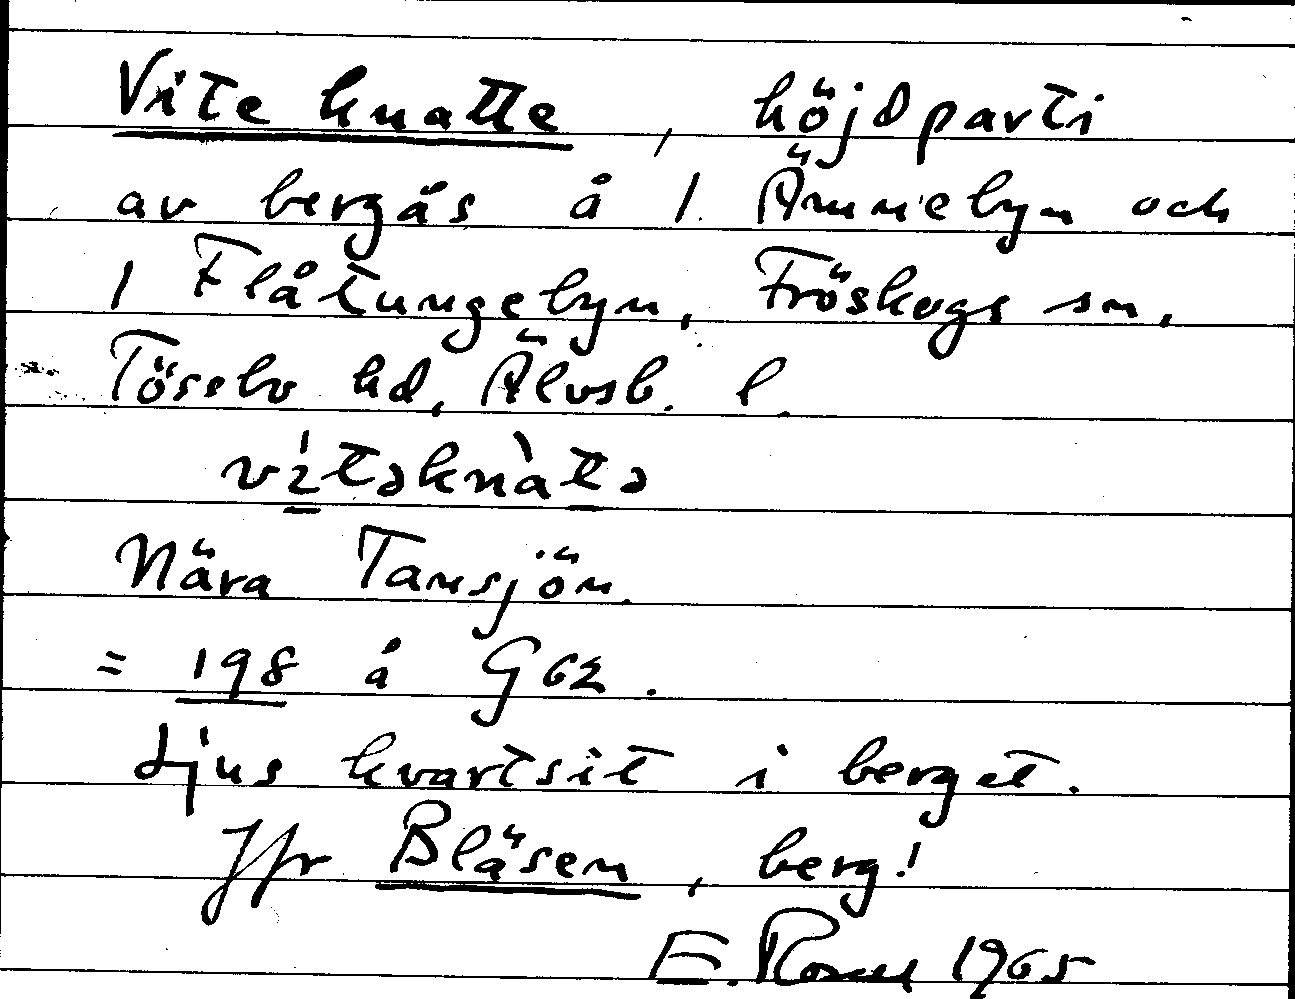 Vite knatte, höjdparti
av bergås å 1 Ämnebyn och
1 Flåtungebyn, Fröskogs sn,
Tössbo hd, Älvsb. l.
vi̲təknat̲ə
Nära Tansjön.
= 198 å G62.
Ljus kvartsit i berget.
Jfr Bläsen, berg!
E. 1965